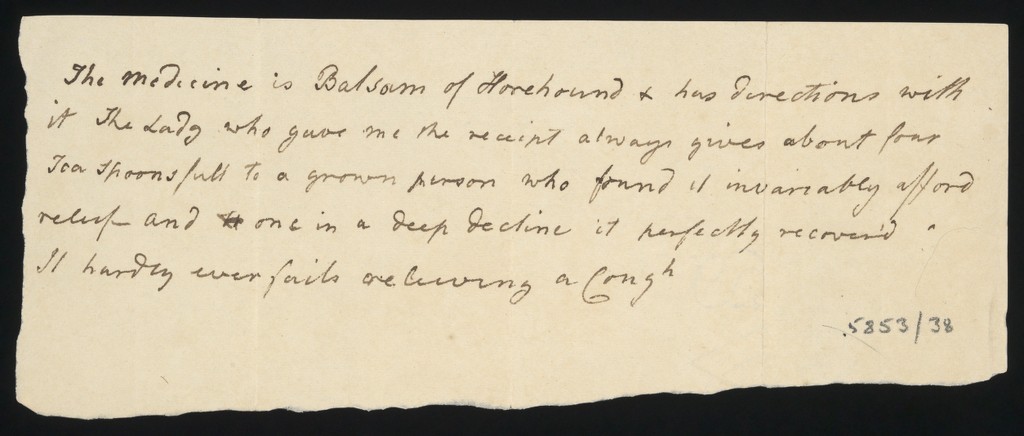 The medicine is Balsam of Horehound & has directions with
it The Lady who gave me the receipt always gives about four
Tea spoonsfull to a grown person who found it invariably afford
relief and one in a deep decline it perfectly recover'd
It hardly ever fails relieving a Cough
5853/38